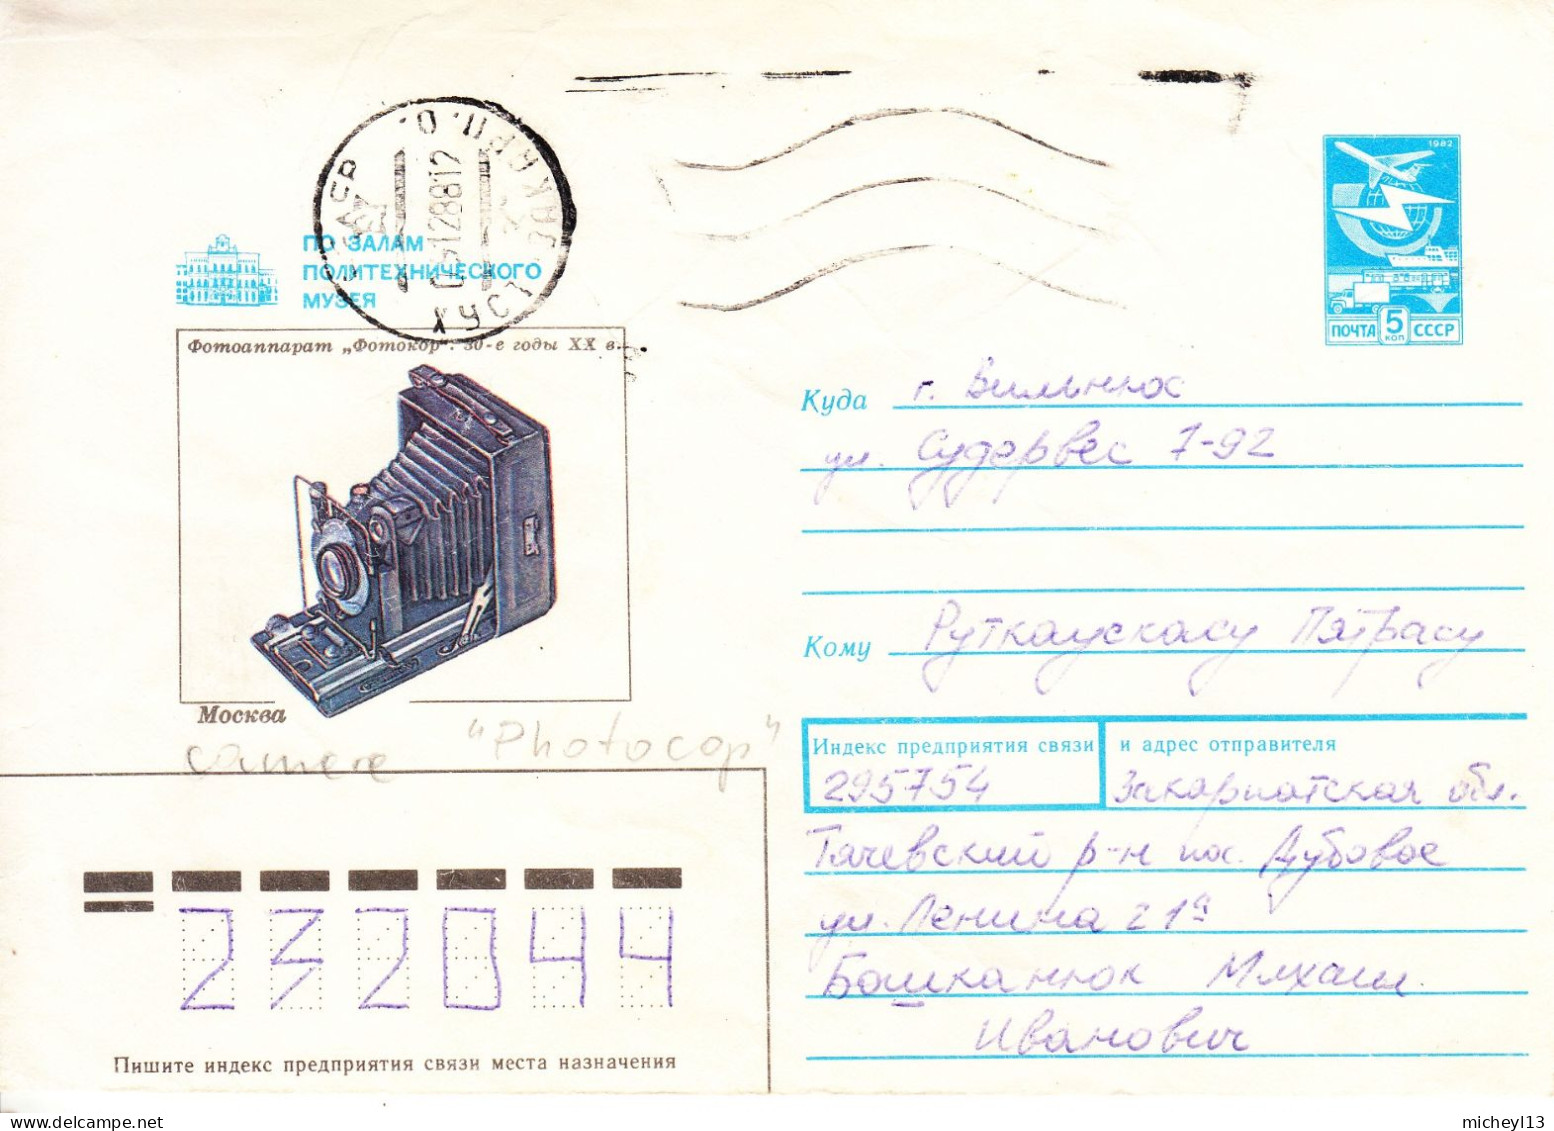 1982
ПОЧТА 5 КОП СССР
ЗАКАРП. О.
05128812
ХУСТ
ПО ЗАЛАМ
ПОЛИТЕХНИЧЕСКОГО
МУЗЕЯ
Фотоаппарат „Фотокор". 30-е годы XX в.
Москва
camere "Photocop"
Куда г. Вильнюс
ул. Судервес 7-92
Кому Руткаускасу Пятрасу
Индекс предприятия связи и адрес отправителя
295754 Закарпатская обл.
Тячевский р-н пос. Дубовое
ул. Ленина 21а
Башканюк Михаил
Иванович
232044
Пишите индекс предприятия связи места назначения
micheyl13